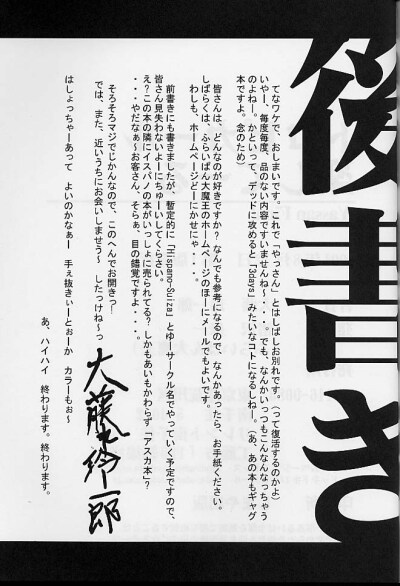 後書き
てなワケで、おしまいです。これで「やっさん」とはしばしお別れです。(って復活するのかよ)
いやー、毎度毎度、品のない内容ですいませんね～・・・。でも、なんかいっつもこんなんなっちゃう
のよねー。かといって、デッドに攻めると「3days」みたいなコトになるしねー。(あ、あの本もギャグ
本ですよ。念のため)
皆さんは、どんなのが好きですか？なんでも参考になるので、なんかあったら、お手紙ください。
しばらくは、ふらいぱん大魔王のホームページのほーにメールでもよいです。
わしも、ホームページどーにかせにゃ・・・。
前書きにも書きましたが、暫定的に「Hispano-Suiza」とゆーサークル名でやっていく予定ですので、
皆さん見失わないよーにちゅーいしてくださいね。
え？この本の隣にイスパノの本がいっしょに売られてる？しかもあいもかわらず「アスカ本」？
・・・やだなぁ～お客さん、そらぁ、目の錯覚ですよ・・・。
そろそろマジでじかんなので、このへんでお開きっ！
では、また、近いうちにお会いしませう～　したっけね～っ
はしょっちゃーあって　よいのかなぁー　手ぇ抜きぃーとぉーか　カラーもぉ～
あ、ハイハイ　終わります。終わります。